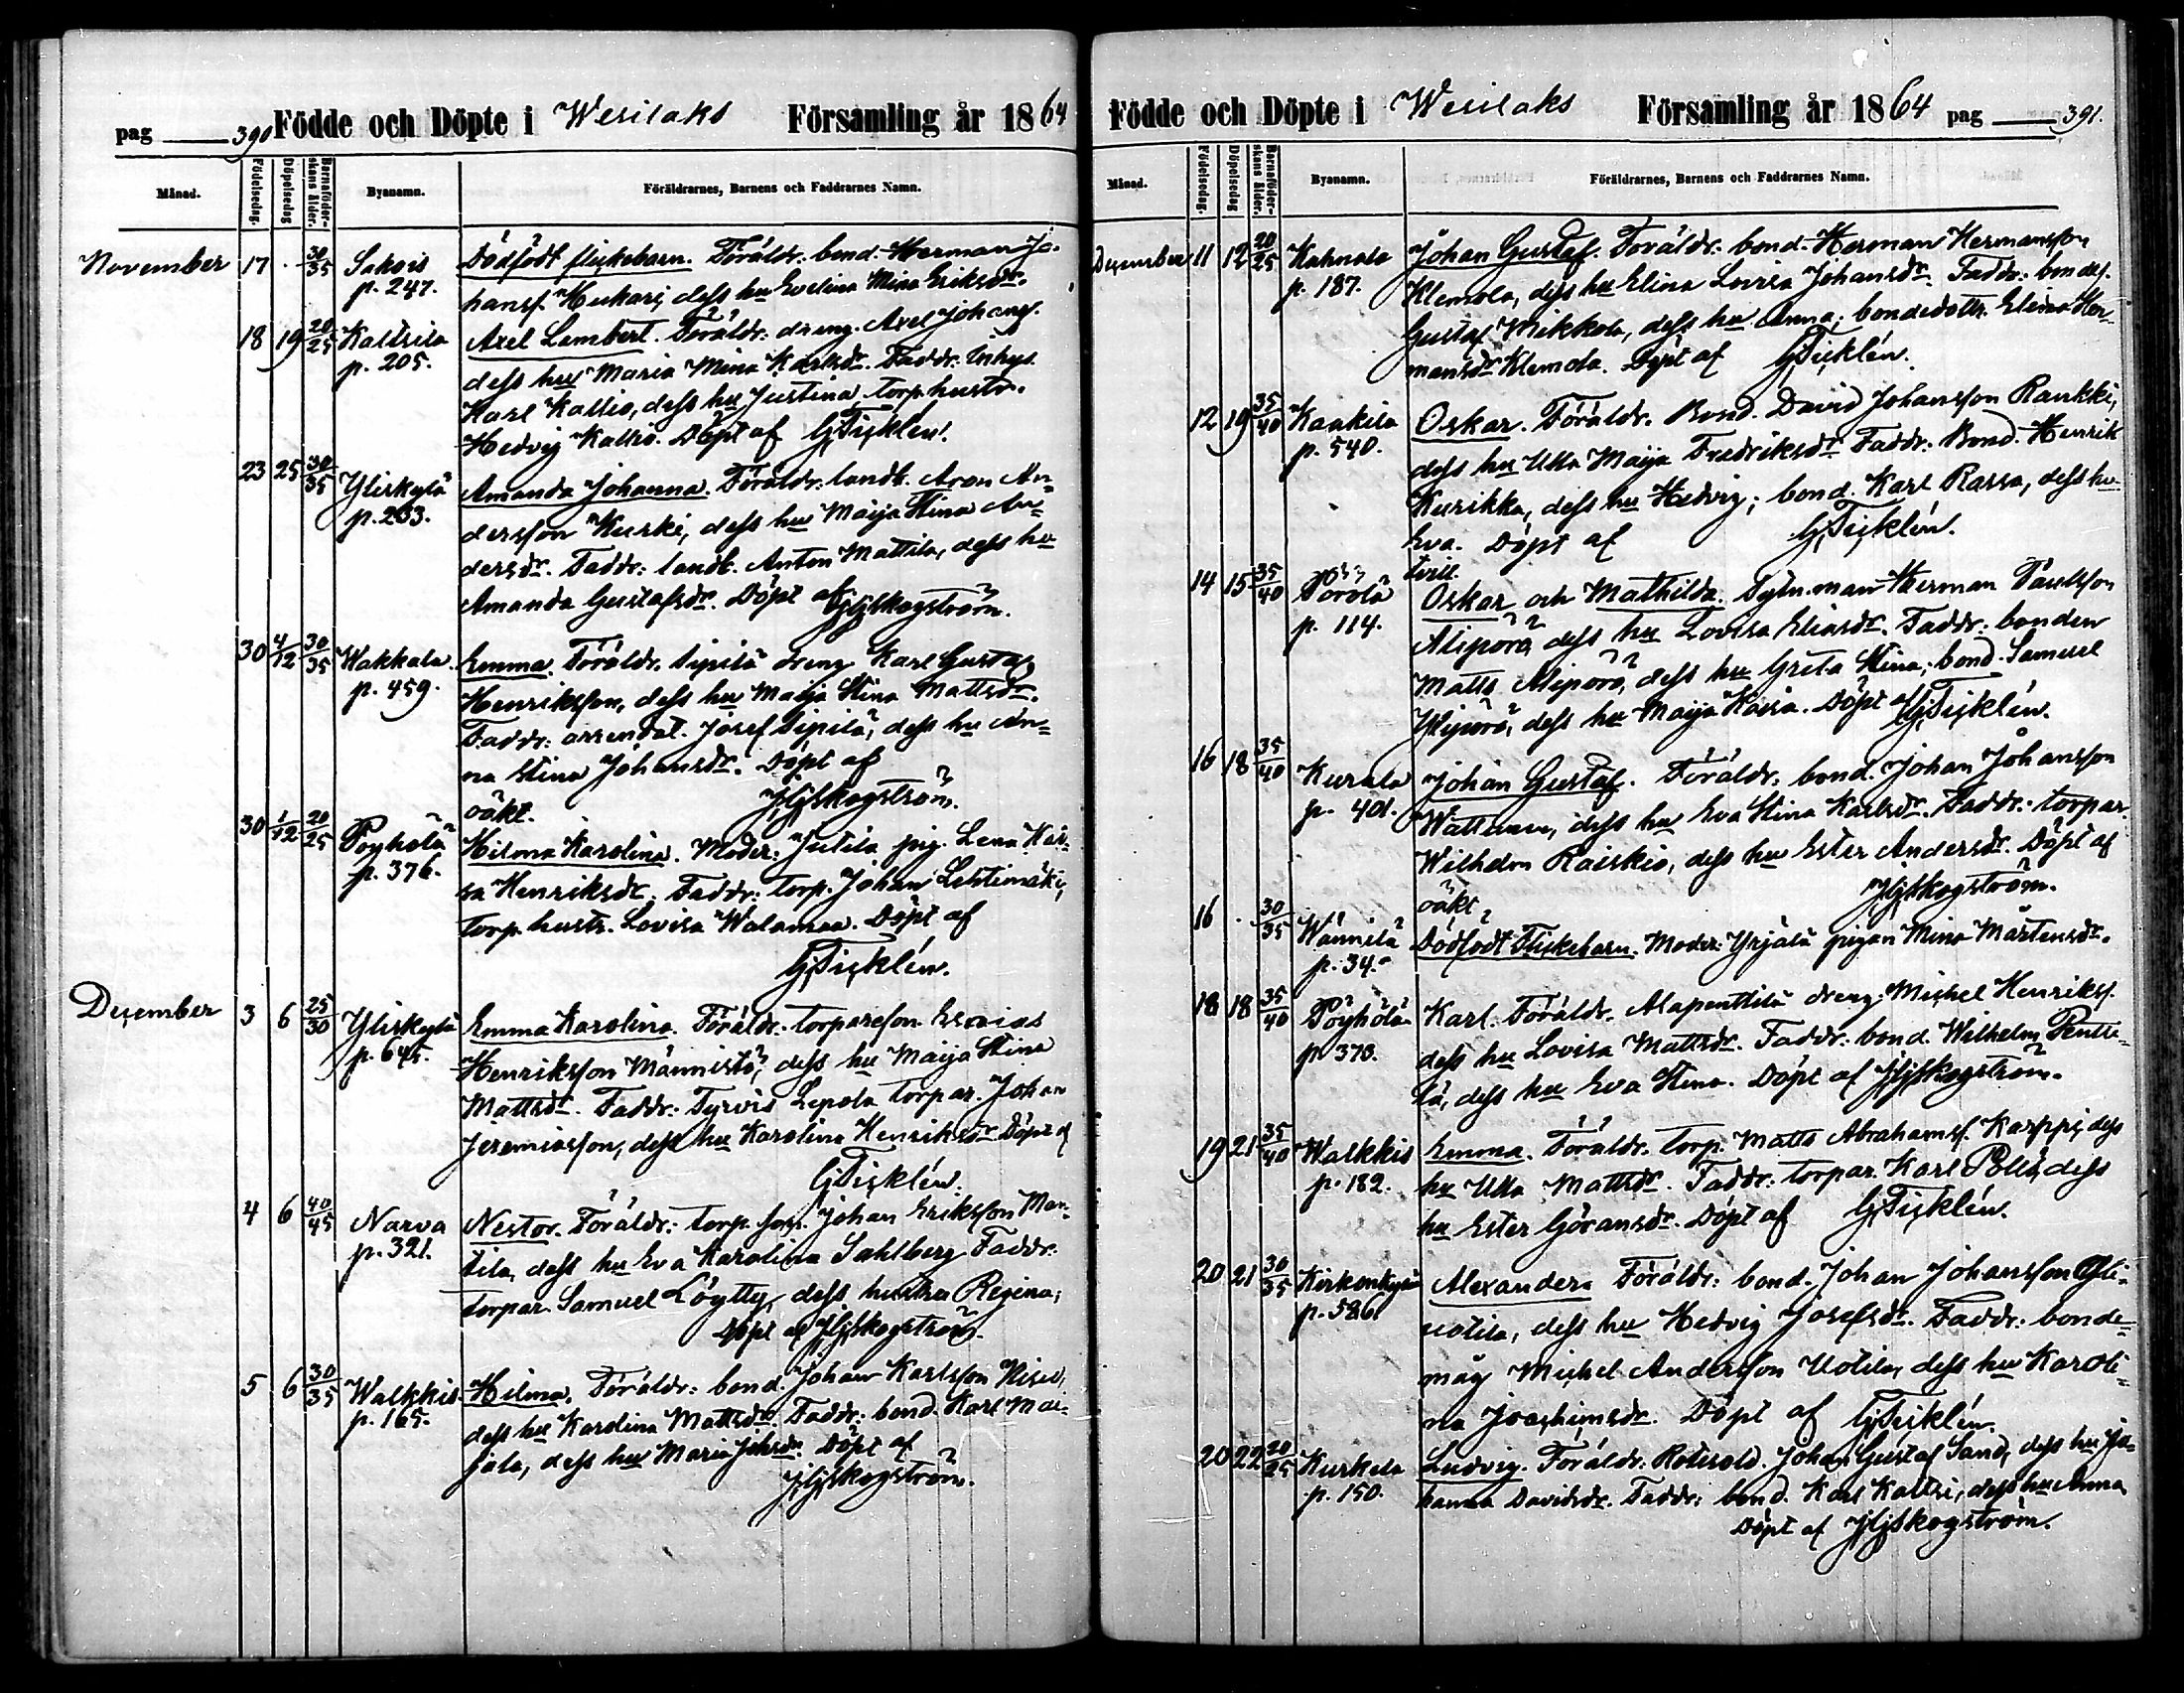 pag 390 Födde och Döpte i Wesilaks Församling år 1864
Månad. Födelsedag. Döpelsedag Barnaföderskans ålder. Byanamn. Föräldrarnes, Barnens och Faddrarnes Namn.
November 17 . 30/35 Sakois Dödfödt flickebarn. Föräldr. bond. Herman Jo-
p. 247. hansf. Hukari, dess hu Evelina Mina Eriksdr.
18 19 20/25 Kaltsila Axel Lambert. Föräldr. dreng. Axel Johansf.
p. 205. dess hu Maria Mina Karlsdr. Faddr. Inhys.
Karl Kallio, dess hu Justina, torp. hustr.
Hedvig Kallio. Döpt af GTicklén.
23 25 30/35 Yliskylä Amanda Johanna. Föräldr. landb. Aron An-
p. 233. dersson Kurki, dess hu Maija Stina An-
dersdr. Faddr: landb. Anton Mattila, dess hu
Amanda Gustafsdr. Döpt af JGSkogström.
30 4/12 30/35 Wakkala. Emma. Föräldr. Sipilä dreng Karl Gustaf
p. 459. Henriksson, dess hu Maija Stina Mattsdr.
Faddr: arrendat. Josef Sipilä, dess hu An-
na Stina Johansdr. Döpt af
oäkt. JGSkogström.
30 1/12 20/25 Pöyhölä Hilma Karolina. Moder: Jutila pig. Lena Kai-
p. 376. sa Henriksdr. Faddr: torp. Johan Lehtimäki,
torp. hustr. Lovisa Walamaa. Döpt af
GTicklén.
December 3 6 25/30 Yliskylä Emma Karolina. Föräldr. torpareson Esaias
p. 645. Henriksson Männistö, dess hu Maija Stina
Mattsdr. Faddr: Tyrvis Lepola torpar. Johan
Jeremiasson, dess hu Karolina Henriksdr Döpt af
GTicklén.
4 6 40/45 Narva Nestor. Föräldr: torp. son. Johan Eriksson Mar-
p. 321. tila, dess hu Eva Karolina Sahlberg Faddr.
torpar. Samuel Löytty, dess hustru Regina;
Döpt af JGSkogström.
5 6 30/35 Walkkis Hilma. Föräldr: bond. Johan Karlsson
p. 165. dess hu Karolina Mattsdr. Faddr: bond. Karl Mai-
jala, dess hu Maria Johsdr Döpt af
JGSkogström.
Födde och Döpte i Wesilaks Församling år 1864 pag 391.
Månad. Födelsedag. Döpelsedag Barnaföderskans ålder. Byanamn. Föräldrarnes, Barnens och Faddrarnes Namn.
December 11 12 20/25 Kahnala Johan Gustaf. Föräldr: bond. Herman Hermansson
p. 187. Klemola, dess hu Elina Lovisa Johansdr. Faddr: bondes.
Gustaf Mikkola, dess hu Anna; bondedottr. Elina Her-
mansdr Klemola. Döpt af GTicklén.
12 19 35/40 Kaakila Oskar. Föräldr. Bond. David Johansson Rankki,
p. 540. dess hu Ulla Maija Fredriksdr Faddr: Bond. Henrik
Kurikka, dess hu Hedvig; bond. Karl Rassa, dess hu
Eva. Döpt af GTicklén.
tvill.
14 15 35/40 Pörölä Oskar och Mathilda. Sytn. man Herman Paulsson
p. 114. Alipörö, dess hu Lovisa Eliasdr. Faddr: bonden
Matts Alipörö, dess hu Greta Stina; bond. Samuel
Ylipörö, dess hu Maija Kaisa. Döpt af GTicklén.
16 18 35/40 Kurala Johan Gustaf. Föräldr. bond. Johan Johansson
p. 401. Wattman, dess hu Eva Stina Karlsdr. Faddr: torpar.
Wilhelm Raiskio, dess hu Ester Andersdr. Döpt af
oäkt JGSkogström.
16 . 30/35 Wännilä Dödfödt Flickebarn. Moder: Yrjälä pigan Mina Mårtensdr.
p. 34.
18 18 35/40 Pöyhölä Karl. Föräldr. Alapenttilä dreng. Michel Henriksf.
p. 373. dess hu Lovisa Mattsdr. Faddr: bond. Wilhelm Pentti-
lä, dess hu Eva Stina. Döpt af JGSkogström.
19 21 35/40 Walkkis Emma. Föräldr. torp. Matts Abrahamsf. Karppi, dess
p. 182. hu Ulla Mattsdr. Faddr. torpar. Karl Polli, dess
hu Ester Göransdr. Döpt af GTicklén.
20 21 30/35 Kirkonkylä Alexander. Föräldr: bond. Johan Johansson Yli-
p. 586. uotila, dess hu Hedvig Josefsdr. Faddr: bonde-
måg Michel Andersson Uotila, dess hu Karoli-
na Joachimsdr. Döpt af GTicklén.
20 22 20/25 Kurkela Ludvig. Föräldr. Rotesold. Johan Gustaf Sand, dess hu Jo-
p. 150. hanna Davidsdr. Faddr: bond. Karl Kaltsi, dess hu Anna
Döpt af JGSkogström.